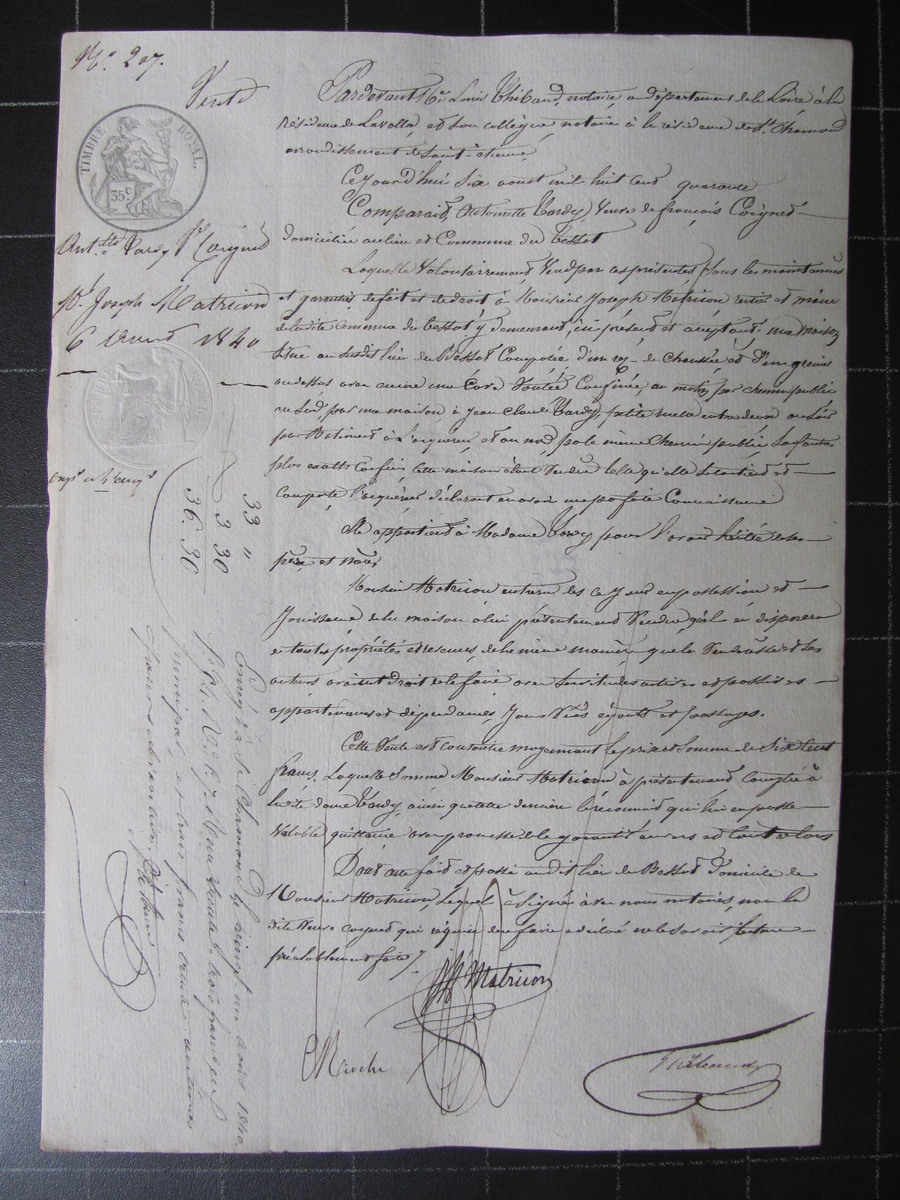 No. 207.
Vente
TIMBRE ROYAL.
35 c.
Antte. Tardy Ve. Coignet
Mr. Joseph Matricon
6 Aoust 1840
Pardevant Me. Louis Thibaud, notaire au département de la Loire à la
résidence de Lavalla, et son collègue, notaire à la résidence de St. Chamond
arrondissement de Saint-étienne.
Ce jourd'hui six aoust mil huit cent quarante
Comparait Antoinette Tardy Veuve de françois Coignet
domiciliée au lieu et Commune du Bessat
Laquelle Volontairement Vend par ces présentes sous les maintenues
et garanties de fait et de droit à Monsieur Joseph Matricon rentier et maire
de la dite commune du Bessat y demeurant, ici présent et acceptant. une maison
située au susdit lieu du Bessat Composée d'un rez-de chaussée et d'un grenier
au dessus avec encore une Cave Voutée, Confinée, au matin par chemin public
au Sud par une maison à Jean Claude Tardy, petite ruelle entre deux, au Soir
par Batiment à L'acquéreur, et au nord par le même Chemin public, Sauf autres
plus exacts Confins, cette maison étant Vendue telle qu'elle Se contient et
comporte l'acquéreur déclarant en avoir une parfaite Connaissance
Elle appartient à Madame Tardy pour l'avoir héritée de ses
père et mère,
Monsieur Matricon entrera dès ce jour en possession et
Jouissance de la maison à lui présentement Vendue qu'il en disposera
en toutes propriétés et ressources, de la même manière que la Venderesse et Ses
auteurs avaient droit de le faire avec Servitudes actives et passives
appartenances et dépendances, Jours Vues égouts et passages.
Cette Vente est consentie moyennant le prix et Somme de Six Cent
francs, Laquelle Somme Monsieur Matricon à présentement Comptée à
la dite dame Tardy, ainsi que cette dernière le reconnait qui lui en passe
Valable quittance avec promesse de le garantir envers et Contre tous
Dont acte fait et passé au dit lieu du Bessat domicile de
Monsieur Matricon, Lequel à Signé avec nous notaires, non la
dite Veuve Coignet qui requise d'en faire a déclaré ne le Savoir lecture
préalablement faite
Matricon
Thibaud
33 "
3 30
36. 30
Enreg. à St Chamond le vingt un aout 1840.
fo. Ro. Co. 7. Reçu trente trois francs pr
principal et trois francs trente centimes
pour